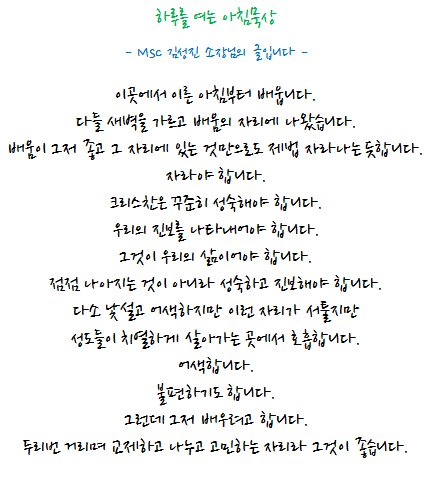 하루를 여는 아침묵상
- MSC 김성진 소장님의 글입니다 -
이곳에서 이른 아침부터 배웁니다.
다들 새벽을 가르고 배움의 자리에 나왔습니다.
배움이 그저 좋고 그 자리에 있는 것만으로도 제법 자라나는 듯합니다.
자라야 합니다.
크리스찬은 꾸준히 성숙해야 합니다.
우리의 진보를 나타내어야 합니다.
그것이 우리의 삶이어야 합니다.
점점 나아지는 것이 아니라 성숙하고 진보해야 합니다.
다소 낯설고 어색하지만 이런 자리가 서툴지만
성도들이 치열하게 살아가는 곳에서 호흡합니다.
어색합니다.
불편하기도 합니다.
그런데 그저 배우려고 합니다.
두리번 거리며 교제하고 나누고 고민하는 자리라 그것이 좋습니다.